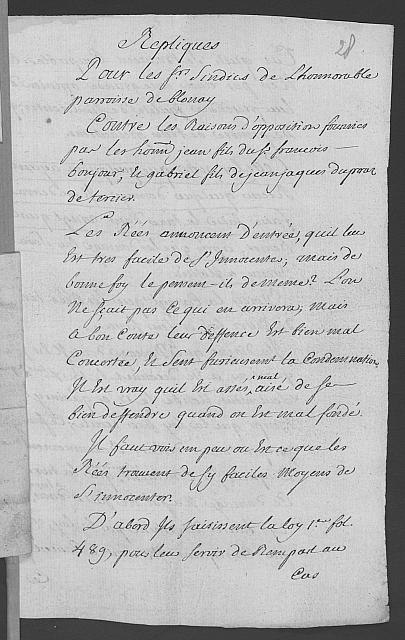 28
Repliques
Pour les Srs. Sindics de L'honnorable
parroisse de blonay
Contre les Raisons d'opposition fournies
par les honn. jean fils du Sr. francois
bonjour, Et gabriel fils de jean jaques
de tercier.
Les Réés annoncent D'entrée, quil leur
Est tres facile de S'Innocenter, mais de
bonne foy le pensent-ils de meme? L'on
Ne sçait pas Ce qui en arrivera; Mais
a bon Conte leur deffence Est bien mal
Concertée, Et Sent furieusement la Condemnation,
Il Est vray quil Est assés mal aisé de se
bien deffendre quand on Est mal fondé.
Il faut voir un peu ou Est ce que les
Réés trouvent de Sy faciles Moyens de
S'innocenter.
D'abord Ils saisissent la loy 1re. fol.
489, pour leur Servir de Rempart au
Cas